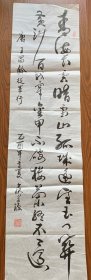 青海长云暗雪山孤城遥望玉门关
黄沙百战穿金甲不破楼兰终不还
唐王昌龄从军行